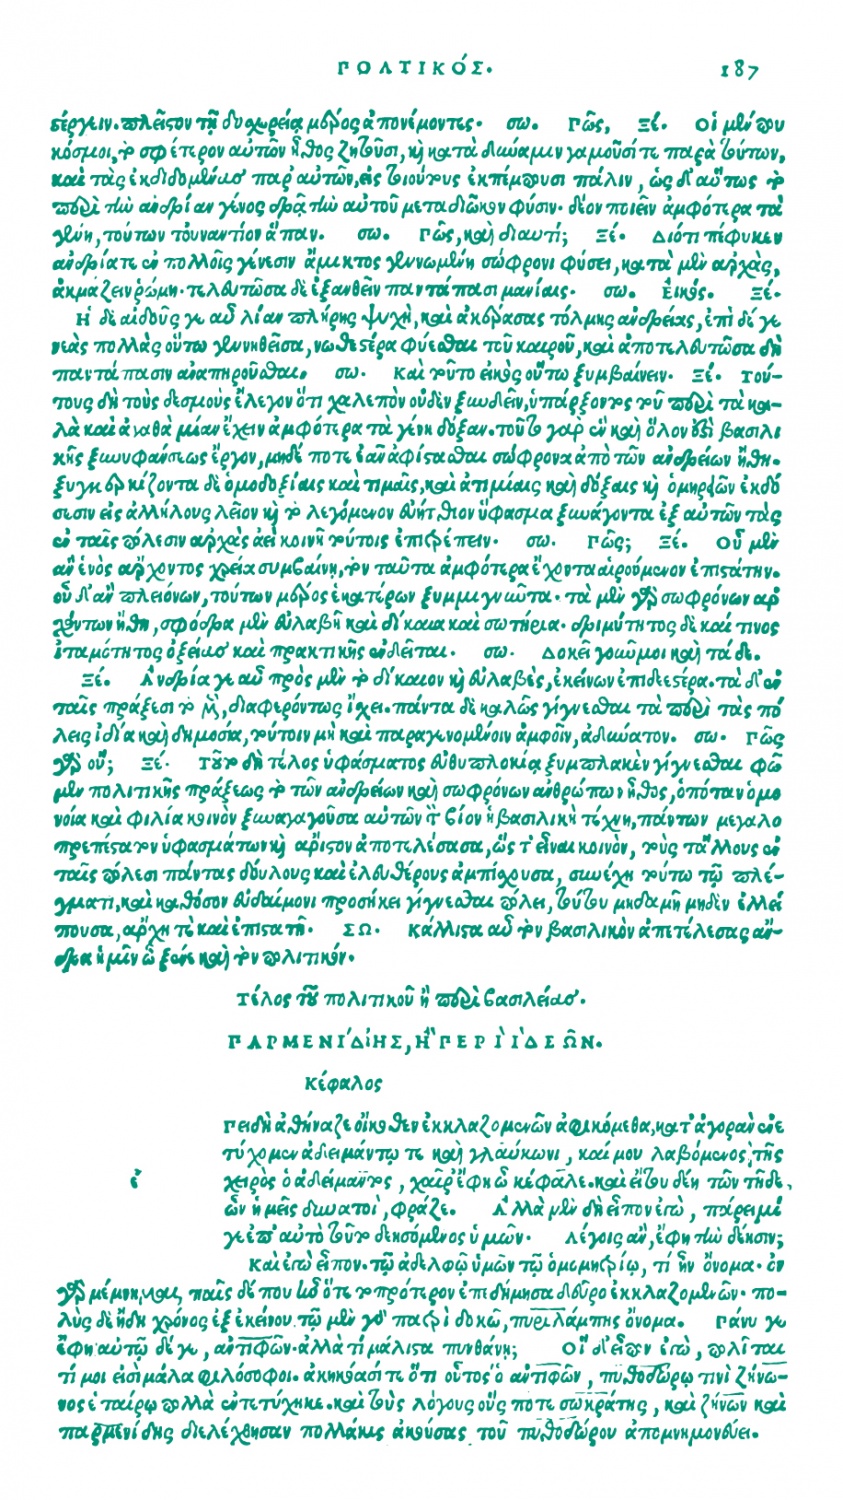 ΠΟΛΤΙΚΌΣ. 187
στέργειν. πλεῖστον τῇ δυσχερείᾳ μέρος ἀπονέμοντες. σω. Πῶς, Ξέ. Οἱ μέν που
κόσμοι, τὸ σφέτερον αὐτῶν ἦθος ζητοῦσι, καὶ κατὰ δύναμιν γαμοῦσί τε παρὰ τούτων,
καὶ τὰς ἐκδιδομένας παρ' αὐτῶν, εἰς τοιούτους ἐκπέμπουσι πάλιν, ὡς δ' αὔτως τὸ
περὶ τὴν ἀνδρίαν γένος δρᾷ τὴν αὐτοῦ μεταδιῶκον φύσιν. δέον ποιεῖν ἀμφότερα τὰ
γένη, τούτων τουναντίον ἅπαν. σω. Πῶς, καὶ διατί; Ξέ. Διότι πέφυκεν
ἀνδρία τε ἐν πολλοῖς γένεσιν ἄμικτος γεννωμένη σώφρονι φύσει, κατὰ μὲν ἀρχὰς,
ἀκμάζειν ῥώμῃ. τελευτῶσα δὲ ἐξανθεῖν παντάπασι μανίαις. σω. Εἰκός. Ξέ.
Ἡ δὲ αἰδοῦς γε αὖ λίαν πλήρης ψυχὴ, καὶ ἀκέραστος τόλμης ἀνδρείας, ἐπὶ δέ γε
νεὰς πολλὰς οὕτω γεννηθεῖσα, νωθεστέρα φύεσθαι τοῦ καιροῦ, καὶ ἀποτελευτῶσα δὴ
παντάπασιν ἀναπηροῦσθαι. σω. Καὶ τοῦτο εἰκὸς οὕτω ξυμβαίνειν. Ξέ. Τού-
τους δὴ τοὺς δεσμοὺς ἔλεγον ὅτι χαλεπὸν οὐδὲν ξυνδεῖν, ὑπάρξοντος τοῦ περὶ τὰ κα-
λὰ καὶ ἀγαθὰ μίαν ἔχειν ἀμφότερα τὰ γένη δόξαν. τοῦτο γὰρ ἓν καὶ ὅλον ἐστὶ βασιλι
κῆς ξυνυφάνσεως ἔργον, μηδέ ποτε ἐᾶν ἀφίστασθαι σώφρονα ἀπὸ τῶν ἀνδρείων ἤθη.
ξυγκερκίζοντα δὲ ὁμοδοξίαις καὶ τιμαῖς, καὶ ἀτιμίαις καὶ δόξαις καὶ ὁμηρειῶν ἐκδό
σεσιν εἰς ἀλλήλους λεῖον καὶ τὸ λεγόμενον εὐήτριον ὕφασμα ξυνάγοντα ἐξ αὐτῶν τὰς
ἐν ταῖς πόλεσιν ἀρχὰς ἀεὶ κοινῇ τούτοις ἐπιτρέπειν. σω. Πῶς; Ξέ. Οὗ μὲν
ἂν ἑνὸς ἄρχοντος χρεία συμβαίνῃ, τὸν ταῦτα ἀμφότερα ἔχοντα αἱρούμενον ἐπιστάτην.
οὗ δ' ἂν πλειόνων, τούτων μέρος ἑκατέρων ξυμμιγνῦντα. τὰ μὲν γὰρ σωφρόνων ἀρ
χόντων ἤθη, σφόδρα μὲν εὐλαβῆ καὶ δίκαια καὶ σωτήρια. δριμύτητος δὲ καί τινος
ἰταμότητος ὀξείας καὶ πρακτικῆς ἐνδεῖται. σω. Δοκεῖ γοῦν μοι καὶ τάδε.
Ξέ. Ἀνδρία γε αὖ πρὸς μὲν τὸ δίκαιον καὶ εὐλαβὲς, ἐκείνων ἐπιδεέστερα. τὰ δ' ἐν
ταῖς πράξεσι τὸ μὲν, διαφερόντως ἴσχει. πάντα δὲ καλῶς γίγνεσθαι τὰ περὶ τὰς πό
λεις ἰδίᾳ καὶ δημοσίᾳ, τούτοιν μὴ καὶ παραγενομένοιν ἀμφοῖν, ἀδύνατον. σω. Πῶς
γὰρ οὔ; Ξέ. Τοῦτο δὴ τέλος ὑφάσματος εὐθυπλοκίᾳ ξυμπλακὲν γίγνεσθαι φῶ
μὲν πολιτικῆς πράξεως τὸ τῶν ἀνδρείων καὶ σωφρόνων ἀνθρώπων ἦθος, ὁπόταν ὁμο
νοίᾳ καὶ φιλίᾳ κοινὸν ξυναγαγοῦσα αὐτῶν τὸν βίον ἡ βασιλικὴ τέχνη, πάντων μεγαλο
πρεπέστατον ὑφασμάτων καὶ ἄριστον ἀποτελέσασα, ὥς τ' εἶναι κοινὸν, τοὺς τ' ἄλλους ἐν
ταῖς πόλεσι πάντας δούλους καὶ ἐλευθέρους ἀμπίσχουσα, συνέχῃ τούτῳ τῷ πλέ-
γματι, καὶ καθόσον εὐδαίμονι προσήκει γίγνεσθαι πόλει, τούτου μηδαμῆ μηδὲν ἐλλεί
πουσα, ἄρχῃ τὲ καὶ ἐπιστατῇ. ΣΩ. Κάλλιστα αὖ τὸν βασιλικὸν ἀπετέλεσας ἄν-
δρα ἡμῖν ὦ ξένε καὶ τὸν πολιτικόν.
Τέλος τοῦ πολιτικοῦ ἢ περὶ βασιλείας.
ΠΑΡΜΕΝΊΔΗΣ, Ἢ ΠΕΡῚ ἸΔΕΩ͂Ν.
Κέφαλος
ἐ
Πειδὴ ἀθήναζε οἴκοθεν ἐκκλαζομενῶν ἀφικόμεθα, κατ' ἀγορὰν ἐνε
τύχομεν ἀδειμάντῳ τε καὶ γλαύκωνι, καί μου λαβόμενος τῆς
χειρὸς ὁ ἀδείμαντος, χαῖρ' ἔφη ὦ κέφαλε. καὶ εἴ του δέῃ τῶν τῇδε,
ὧν ἡμεῖς δυνατοὶ, φράζε. Ἀλλὰ μὲν δὴ εἶπον ἐγὼ, πάρειμί
γε ἐπ' αὐτὸ τοῦτο δεησόμενος ὑμῶν. Λέγοις ἂν, ἔφη τὴν δέησιν;
Καὶ ἐγὼ εἶπον. τῷ ἀδελφῷ ὑμῶν τῷ ὁμομητρίῳ, τί ἦν ὄνομα. οὐ
γὰρ μέμνημαι, παῖς δέ που ἦν ὅτε τοπρότερον ἐπεδήμησα δεῦρο ἐκκλαζομενῶν. πο-
λὺς δὲ ἤδη χρόνος ἐξ ἐκείνου. τῷ μὲν γὰρ πατρὶ δοκῶ, πυριλάμπης ὄνομα. Πάνυ γε
ἔφη αὐτῷ δέ γε, ἀντιφῶν. ἀλλὰ τί μάλιστα πυνθάνῃ; Οἵδ' εἶπον ἐγὼ, πολῖται
τί μοι εἰσὶ μάλα φιλόσοφοι. ἀκηκόασί τε ὅτι οὗτος ὁ ἀντιφῶν, πυθοδώρῳ τινὶ ζήνω-
νος ἑταίρῳ πολλὰ ἐντετύχηκε. καὶ τοὺς λόγους οὕς ποτε σωκράτης, καὶ ζήνων καὶ
παρμενίδης διελέχθησαν πολλάκις ἀκούσας τοῦ πυθοδώρου ἀπομνημονεύει.